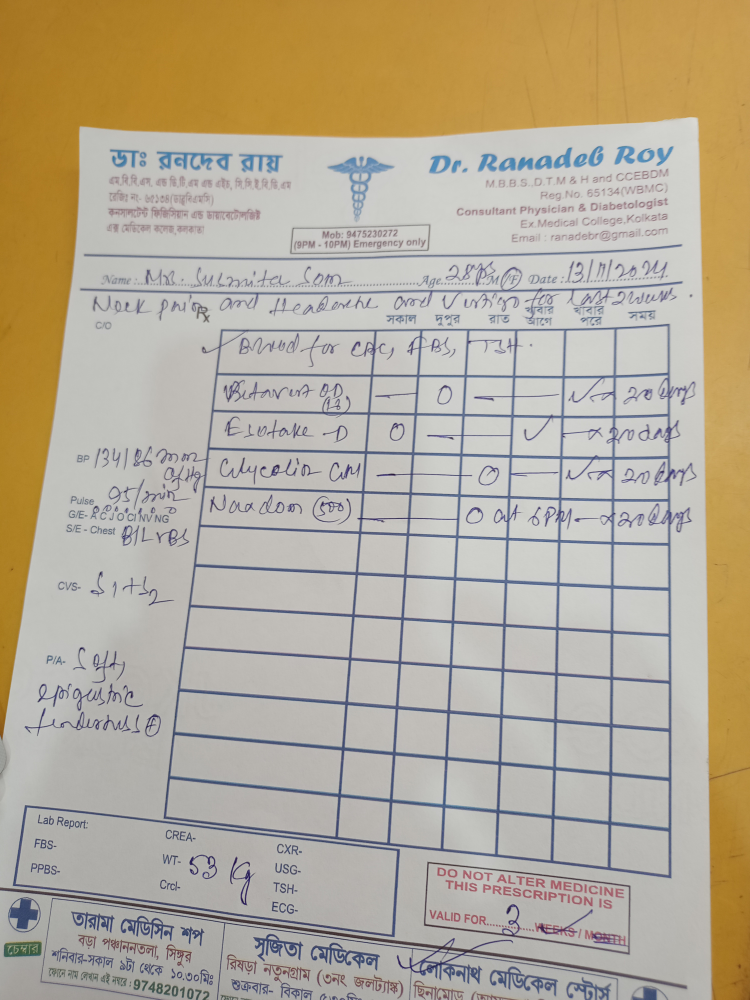 ডাঃ রনদেব রায়
এম.বি.বি.এস, এন্ড ডি.টি.এম এন্ড এইচ, সি.সি.ই.বি.ডি.এম
রেজিঃ নং- ৬৫১৩৪(ডব্লুবিএমসি)
কনসালটেন্ট ফিজিসিয়ান এন্ড ডায়াবেটোলজিষ্ট
এক্স মেডিকেল কলেজ,কলকাতা
Mob: 9475230272
(9PM - 10PM) Emergency only
Dr. Ranadeb Roy
M.B.B.S.,D.T.M & H and CCEBDM
Reg.No. 65134(WBMC)
Consultant Physician & Diabetologist
Ex.Medical College,Kolkata
Email : ranadebr@gmail.com
Name : Mrs. Susmita Som Age 28 yrs M/F Date : 13/11/2024
Neck pain and Headache and Vertigo for last 2 weeks.
C/O
Rx
সকাল দুপুর রাত খাবার আগে খাবার পরে সময়
✓ Blood for CBC, FBS, TSH.
OD — O — — ✓ — x 20 days
Esotake - D O — — ✓ — x 20 days
— — O — ✓ — x 20 days
(500) — — O at 6PM — x 20 days
BP 134/86 mm of Hg
Pulse 95/min
G/E- A C J O CI NV NG
S/E - Chest B/L VBS
CVS- S1+S2
P/A- Soft,
epigastric
tenderness (+)
Lab Report:
FBS-
PPBS-
CREA-
WT- 53 Kg
Crcl-
CXR-
USG-
TSH-
ECG-
DO NOT ALTER MEDICINE
THIS PRESCRIPTION IS
VALID FOR...3...WEEKS / MONTH
চেম্বার
তারামা মেডিসিন শপ
বড়া পঞ্চাননতলা, সিঙ্গুর
শনিবার-সকাল ৯টা থেকে ১০.৩০মিঃ
ফোনে নাম লেখান এই নম্বরে : 9748201072
সৃজিতা মেডিকেল
রিষড়া নতুনগ্রাম (৩নং জলট্যাঙ্ক)
শুক্রবার- বিকাল
লোকনাথ মেডিকেল স্টোর্স